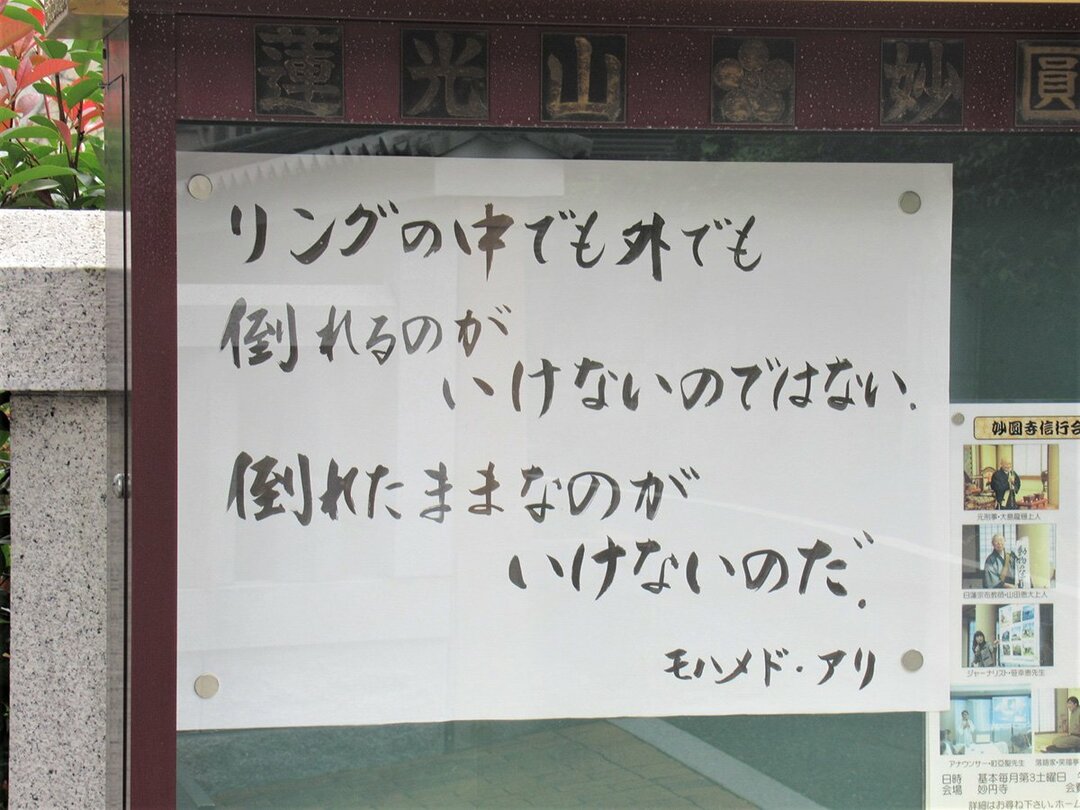 蓮光山 妙圓
リングの中でも外でも
倒れるのが
いけないのではない.
倒れたままなのが
いけないのだ.
モハメド・アリ
妙圓寺信行会
元刑事・大島龍穏上人
日蓮宗布教師・山田恵大上人
ジャーナリスト・笹幸恵先生
アナウンサー・町亞聖先生 落語家・笑福亭
日時 基本毎月第3土曜日
会場 妙円寺
詳細はお尋ね下さい。ホー